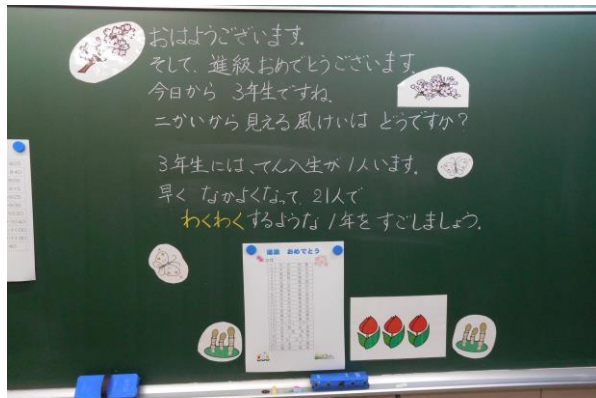 おはようございます。
そして、進級おめでとうございます。
今日から 3年生ですね。
二かいから見える風けいは どうですか？
3年生には、てん入生が1人います。
早く なかよくなって、21人で
わくわくするような1年をすごしましょう。
進級 おめでとう